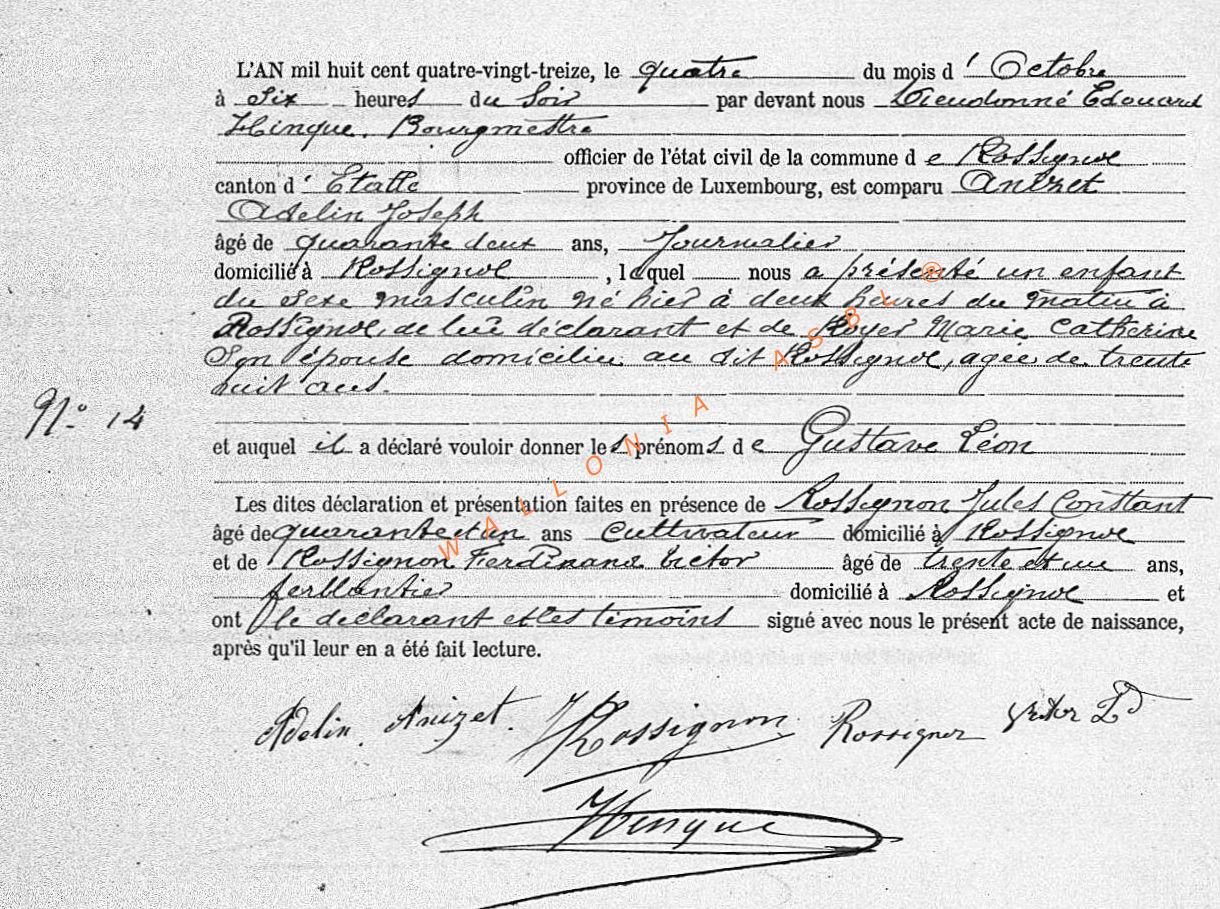 L'AN mil huit cent quatre-vingt-treize, le quatre du mois d' Octobre
à Six heures du Soir par devant nous Dieudonné Edouard
Hinque. Bourgmestre
officier de l'état civil de la commune de Rossignol
canton d' Etalle province de Luxembourg, est comparu Anizet
Adelin Joseph
âgé de quarante deux ans, Journalier
domicilié à Rossignol, lequel nous a présenté un enfant
du sexe masculin né hier à deux heures du matin à
Rossignol, de lui déclarant et de Royer Marie Catherine
Son épouse domiciliée au dit Rossignol, agée de trente
huit ans.
N° 14
et auquel il a déclaré vouloir donner les prénoms de Gustave Léon
Les dites déclaration et présentation faites en présence de Rossignon Jules Constant
âgé de quarante et un ans Cultivateur domicilié à Rossignol
et de Rossignon Ferdinand Victor âgé de trente et un ans,
ferblantier domicilié à Rossignol et
ont le déclarant et les témoins signé avec nous le présent acte de naissance,
après qu'il leur en a été fait lecture.
Adelin Anizet. JRossignon Rossignon Victor Fd
Hinque
WALLONIA ASBL ®